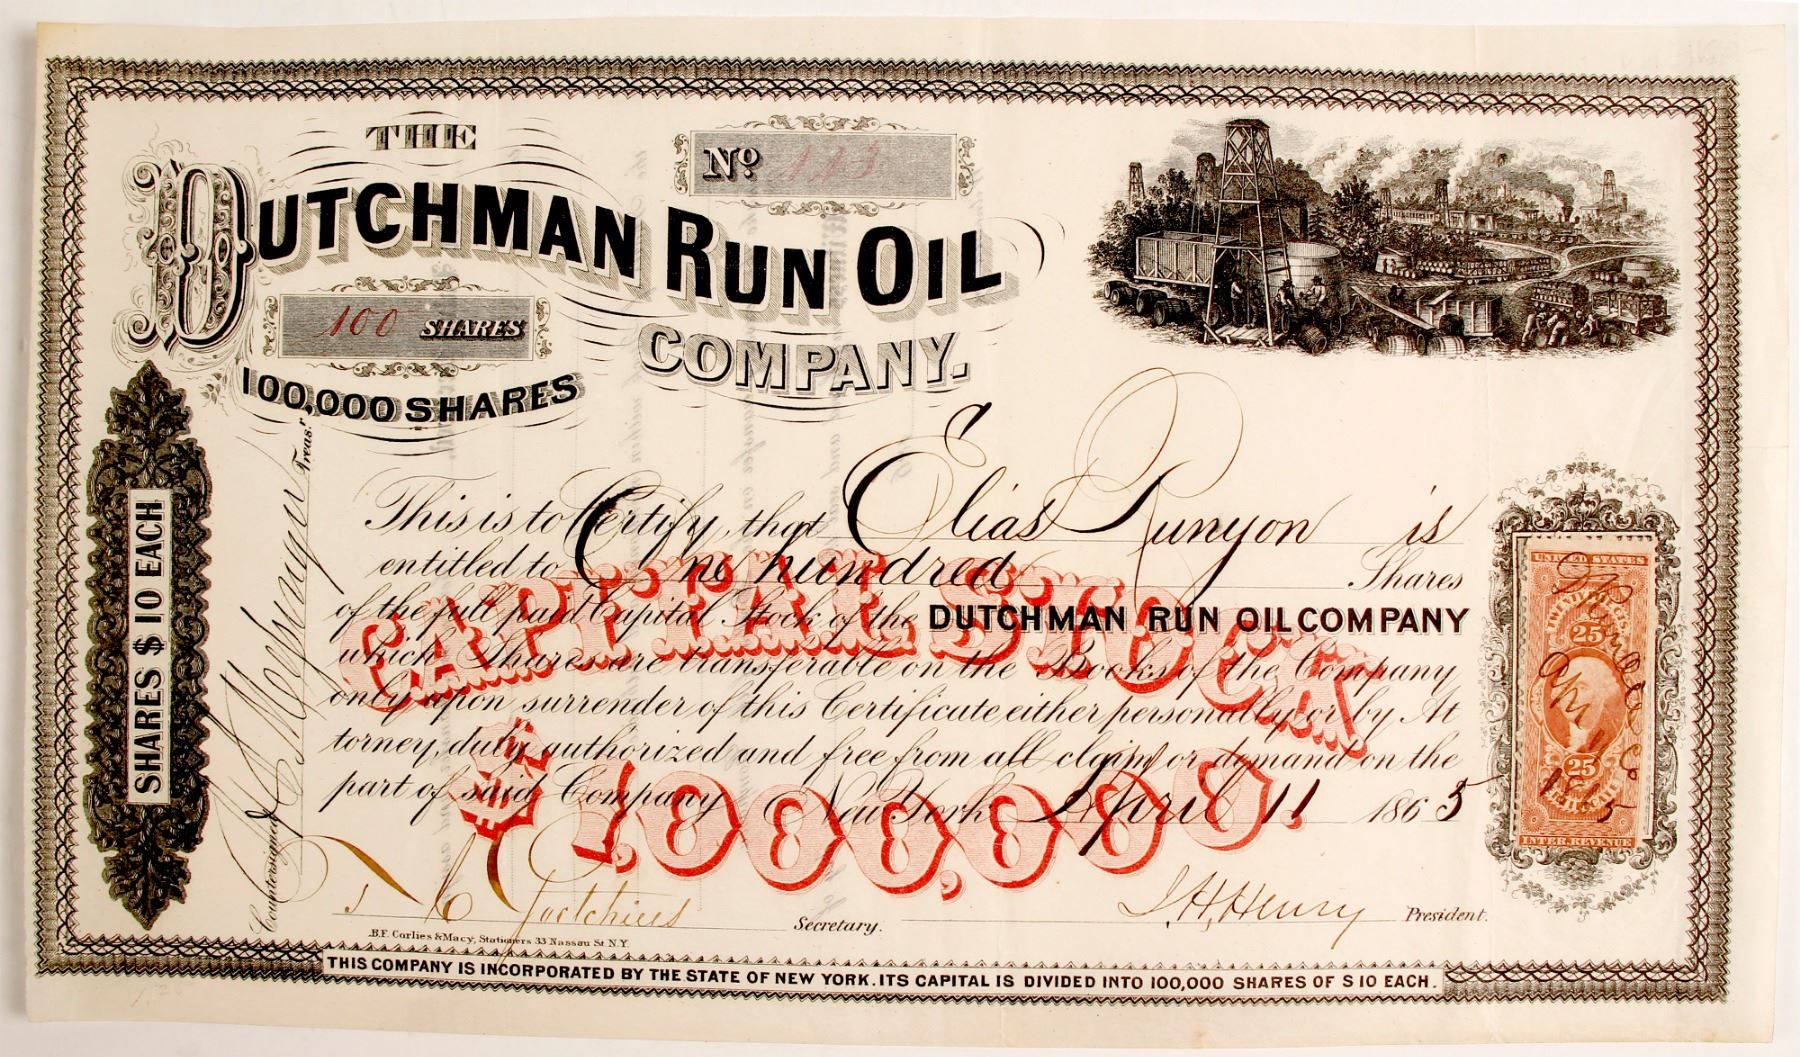 THE
DUTCHMAN RUN OIL
COMPANY.
No. 143
100 SHARES
100,000 SHARES
SHARES $10 EACH
Countersigned Treasr
This is to Certify, that Elias Runyon is
entitled to One hundred Shares
of the full paid Capital Stock of the DUTCHMAN RUN OIL COMPANY
which Shares are transferable on the Books of the Company
only upon surrender of this Certificate either personally or by At
torney, duly authorized and free from all claim or demand on the
part of said Company New York April 11 1865
CAPITAL STOCK
$1,000,000.
Secretary.
J. H. Henry President.
UNITED STATES
TWENTY FIVE CTS
25
25
INTER. REVENUE
Apl 11
1865
B.F. Corlies & Macy, Stationers 33 Nassau St. N.Y.
THIS COMPANY IS INCORPORATED BY THE STATE OF NEW YORK. ITS CAPITAL IS DIVIDED INTO 100,000 SHARES OF $10 EACH.